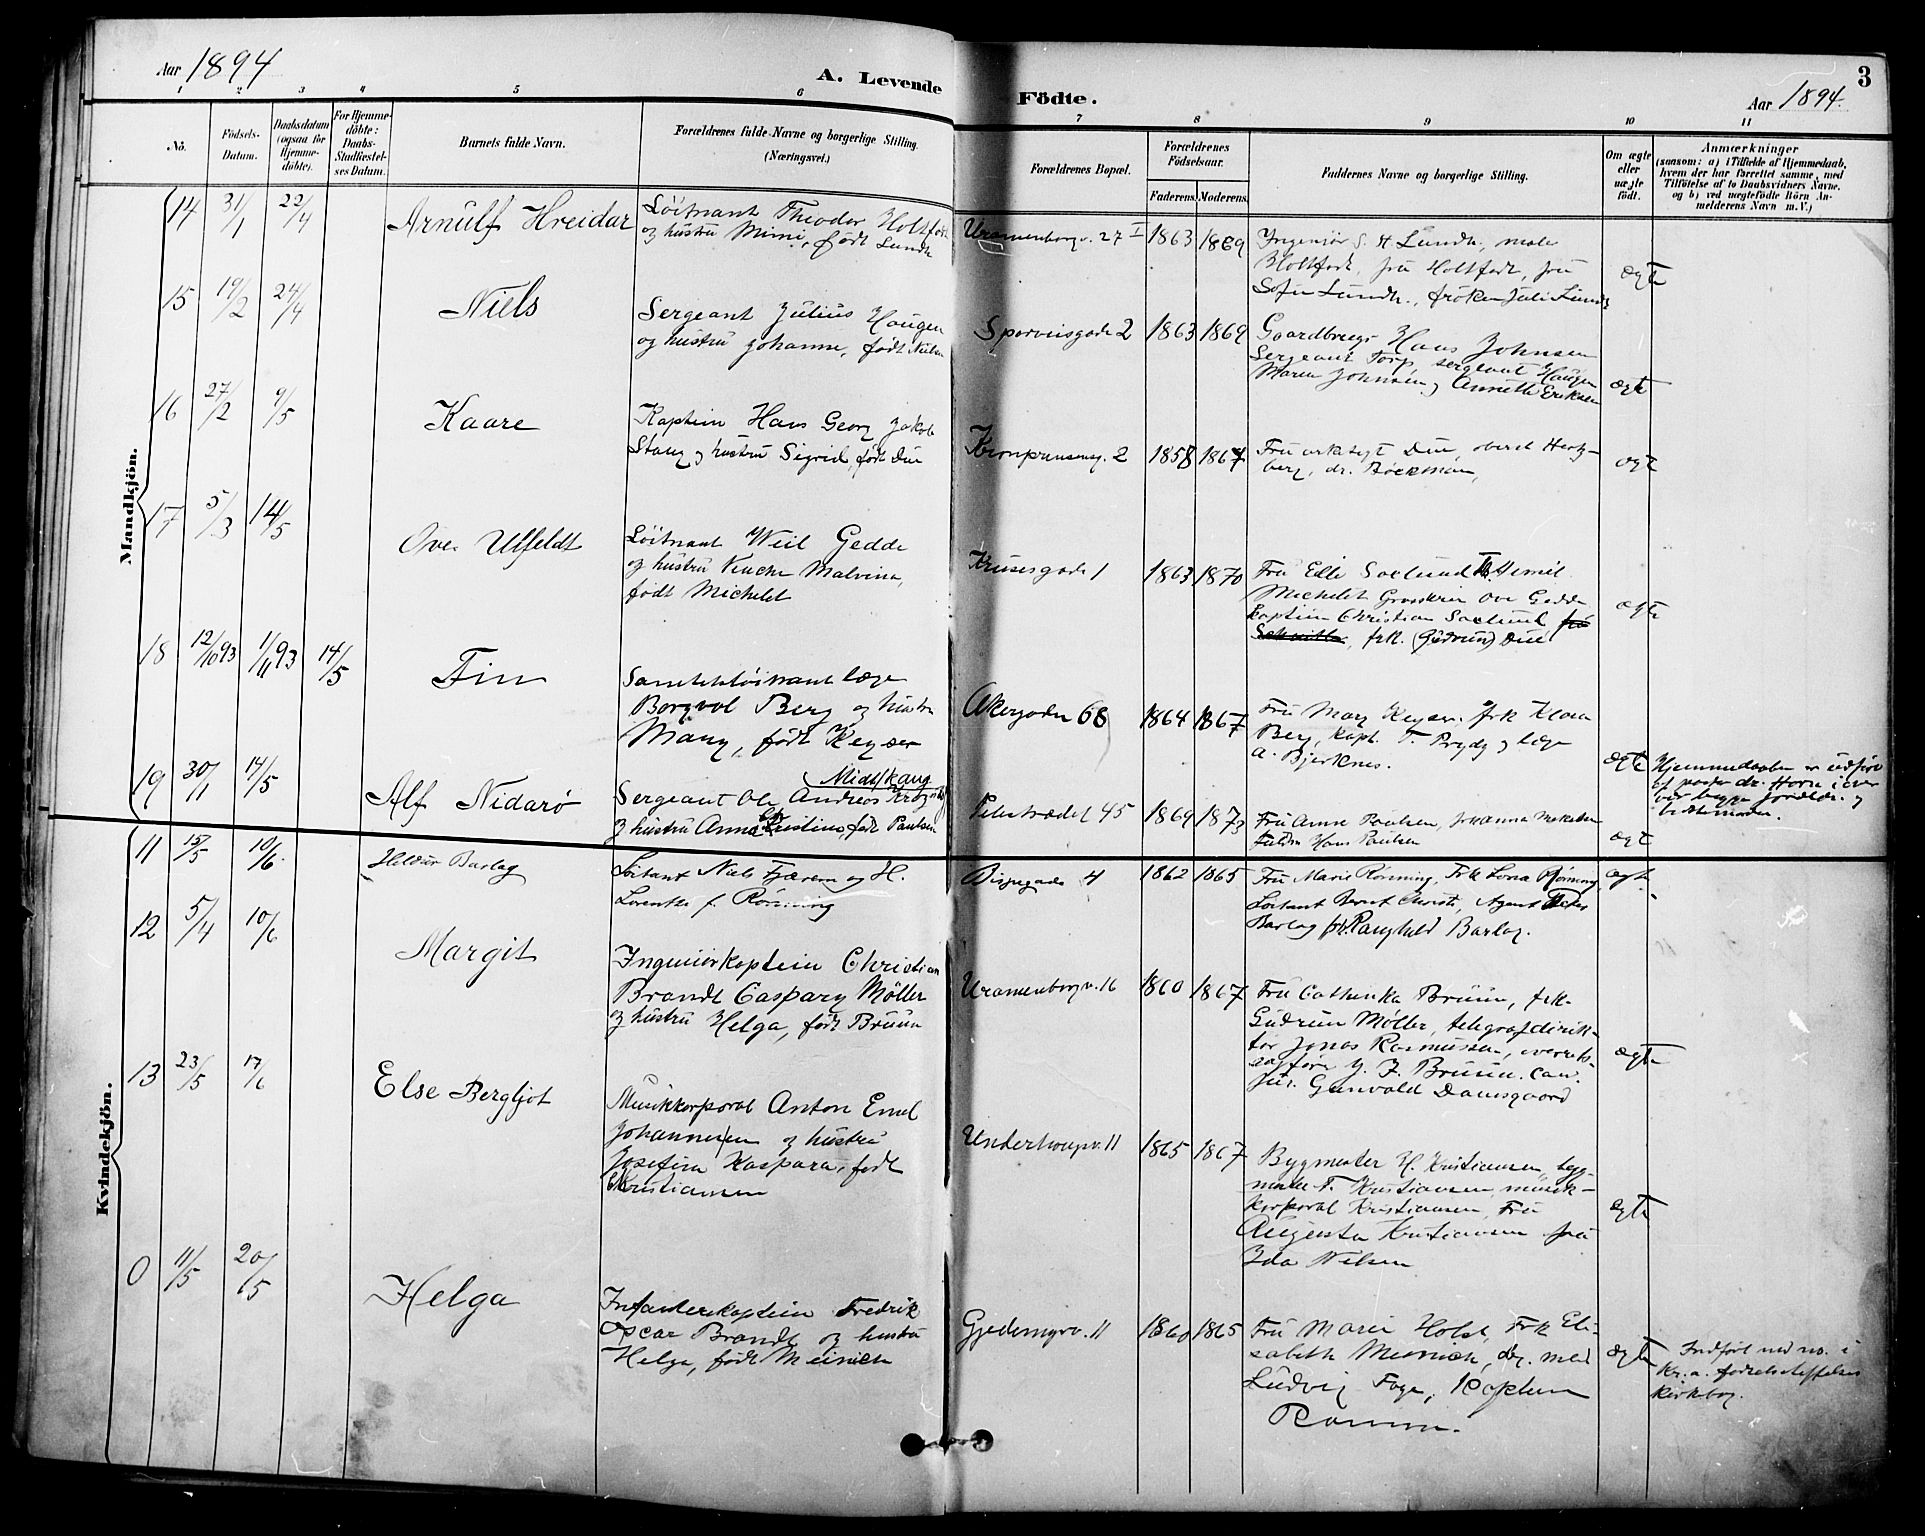 Aar 1894
A. Levende
Födte.
Aar 1894.
3
1 2 3 4 5 6 7 8 9 10 11
No.
Födsels-
Datum.
Daabsdatum
(ogsaa for
Hjemme-
döbte).
For Hjemme-
döbte:
Daabs-
Stadfæstel-
ses Datum.
Barnets fulde Navn.
Forældrenes fulde Navne og borgerlige Stilling.
(Næringsvei.)
Forældrenes Bopæl.
Forældrenes
Födselsaar.
Faderens. Moderens.
Faddernes Navne og borgerlige Stilling.
Om ægte
eller
uægte
født.
Anmærkninger
(saasom: a) i Tilfælde af Hjemmedaab,
hvem der har forrettet samme, med
Tilføielse af to Daabsvidners Navne,
og b) ved uægtefödte Börn An-
melderens Navn m.V.)
Mandkjön.
14 31/1 22/4 Arnulf Hreidar
Löitnant Theodor Holtfodt
og hustru Mimi, født Lundh
Uranienborgv. 27 I 1863 1869
Ingeniör S. H. Lundh, maler
Holtfodt, fru Holtfodt, fru
Sofie Lundh, fröken Juli Lundh
ægte
15 19/2 24/4 Niels
Sergeant Julius Haugen
og hustru Johanne, født Nielsen
Sporveisgade 2 1863 1869
Gaardbrug. Hans Johnsen
Sergeant Torp, sergeant Haugen
Maren Johnsen, Annette Eriksen
ægte
16 27/2 9/5 Kaare
Kaptein Hans Georg Jakob
Stang og hustru Sigrid, født Due
Kronprinsensg. 2 1858 1867
Fru arkitekt Due, oberst Hertz-
berg, dr. Böckman,
ægte
17 5/3 14/5 Ove Ulfeldt
Löitnant Weil Gedde
og hustru Malvina,
født Michelet
Krusesgade 1 1863 1870
Fru Elli Saelund
Michelet Ove Gedde
kaptein Christian Saelund fru
, frk. (Gudrun) Due
ægte
18 12/10 93 1/11 93 14/5 Fin
Sanitetslöitnant læge
Borgvol Berg og hustru
Many, født Keyser
Akersgaden 68 1864 1867
Fru Mary Keyser, frk Klara
Berg, kapt. T. Prydz og læge
A. Bjerknes.
ægte
Hjemmedaaben er udført
af pastor dr. Horn i over
vær begge forældre og
bedstemoder.
19 30/1 14/5 Alf Nidarö
Midtskaug
Sergeant Ole Andreas
og hustru Anna Christine, født Paulsen
Pilestrædet 45 1869 1873
Fru Anne Paulsen, Johanna
Hans Paulsen
ægte
Kvindekjön.
11 15/5 10/6 Heldur Barlag
Löitnant Niels Fjærem og H.
Lorentze f. Rönning
4 1862 1865
Fru Marie Rönning, Frk Lova Rönning,
Löitnant Bernt Christi, Agent Peter
Barlag frk. Ranghild Barlag.
ægte
12 5/4 10/6 Margit
Ingeniörkaptein Christian
Brandt Caspary Möller
og hustru Helga, født Bruun
Uranienborgv. 16 1860 1867
Fru Cathinka Bruun, frk.
Gudrun Møller, telegrafdirek-
tör Jonas Rasmussen, overrets-
sagförer J. F. Bruun. Cand.
jur. Gunvald Damsgaard
ægte
13 23/5 17/6 Else Bergljot
Musikkorporal Anton Emil
Johannesen og hustru
Josefine Kaspara, født
Christiansen
Underhaugsv. 11 1865 1867
Bygmester H. Kristiansen, byg-
mester T. Kristiansen, musik-
korporal Kristiansen, Fru
Augusta Kristiansen fru
Ida Nilsen
ægte
0 11/5 20/5 Helga
Infanterikaptein Fredrik
Oscar Brandt og hustru
Helga, født Meinich
Gjedemyrv. 11 1860 1865
Fru Marie Holst, Frk Eli-
sabeth Meinich, dr. med
Ludvig Faye, Kaptein
Ramm.
ægte
Indført med no. i
Kr.a. fødselsstiftelses
kirkebog.